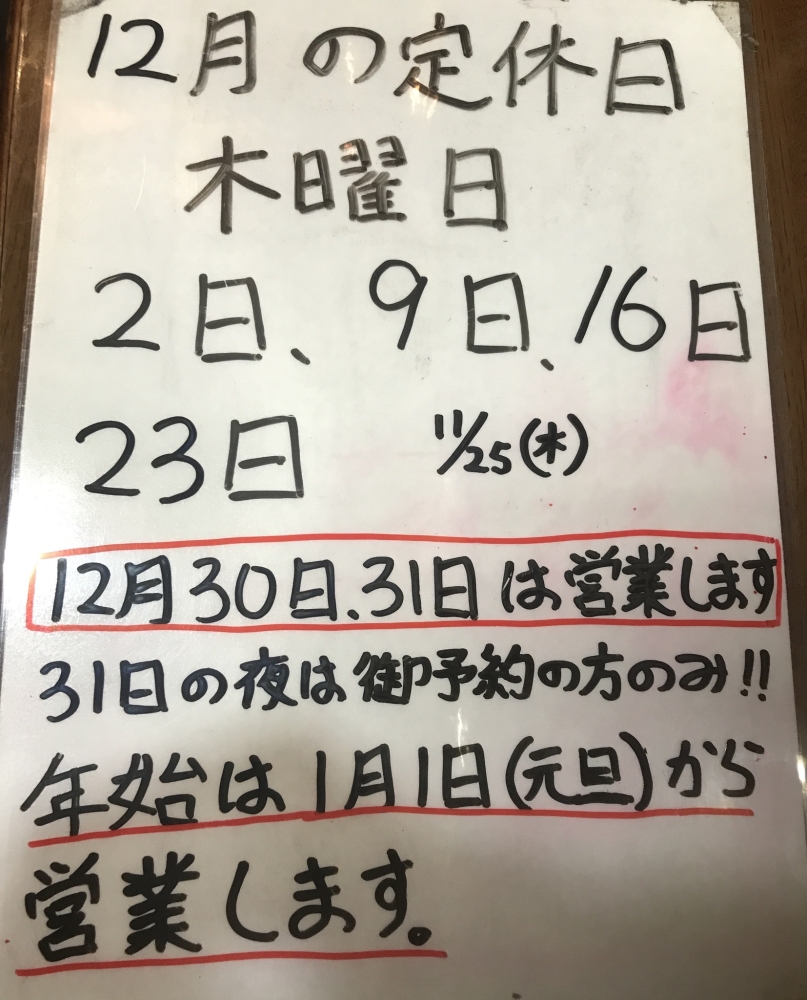 12月の定休日
木曜日
2日、9日、16日
23日 11/25(木)
12月30日、31日は営業します
31日の夜は御予約の方のみ!!
年始は1月1日(元旦)から
営業します。